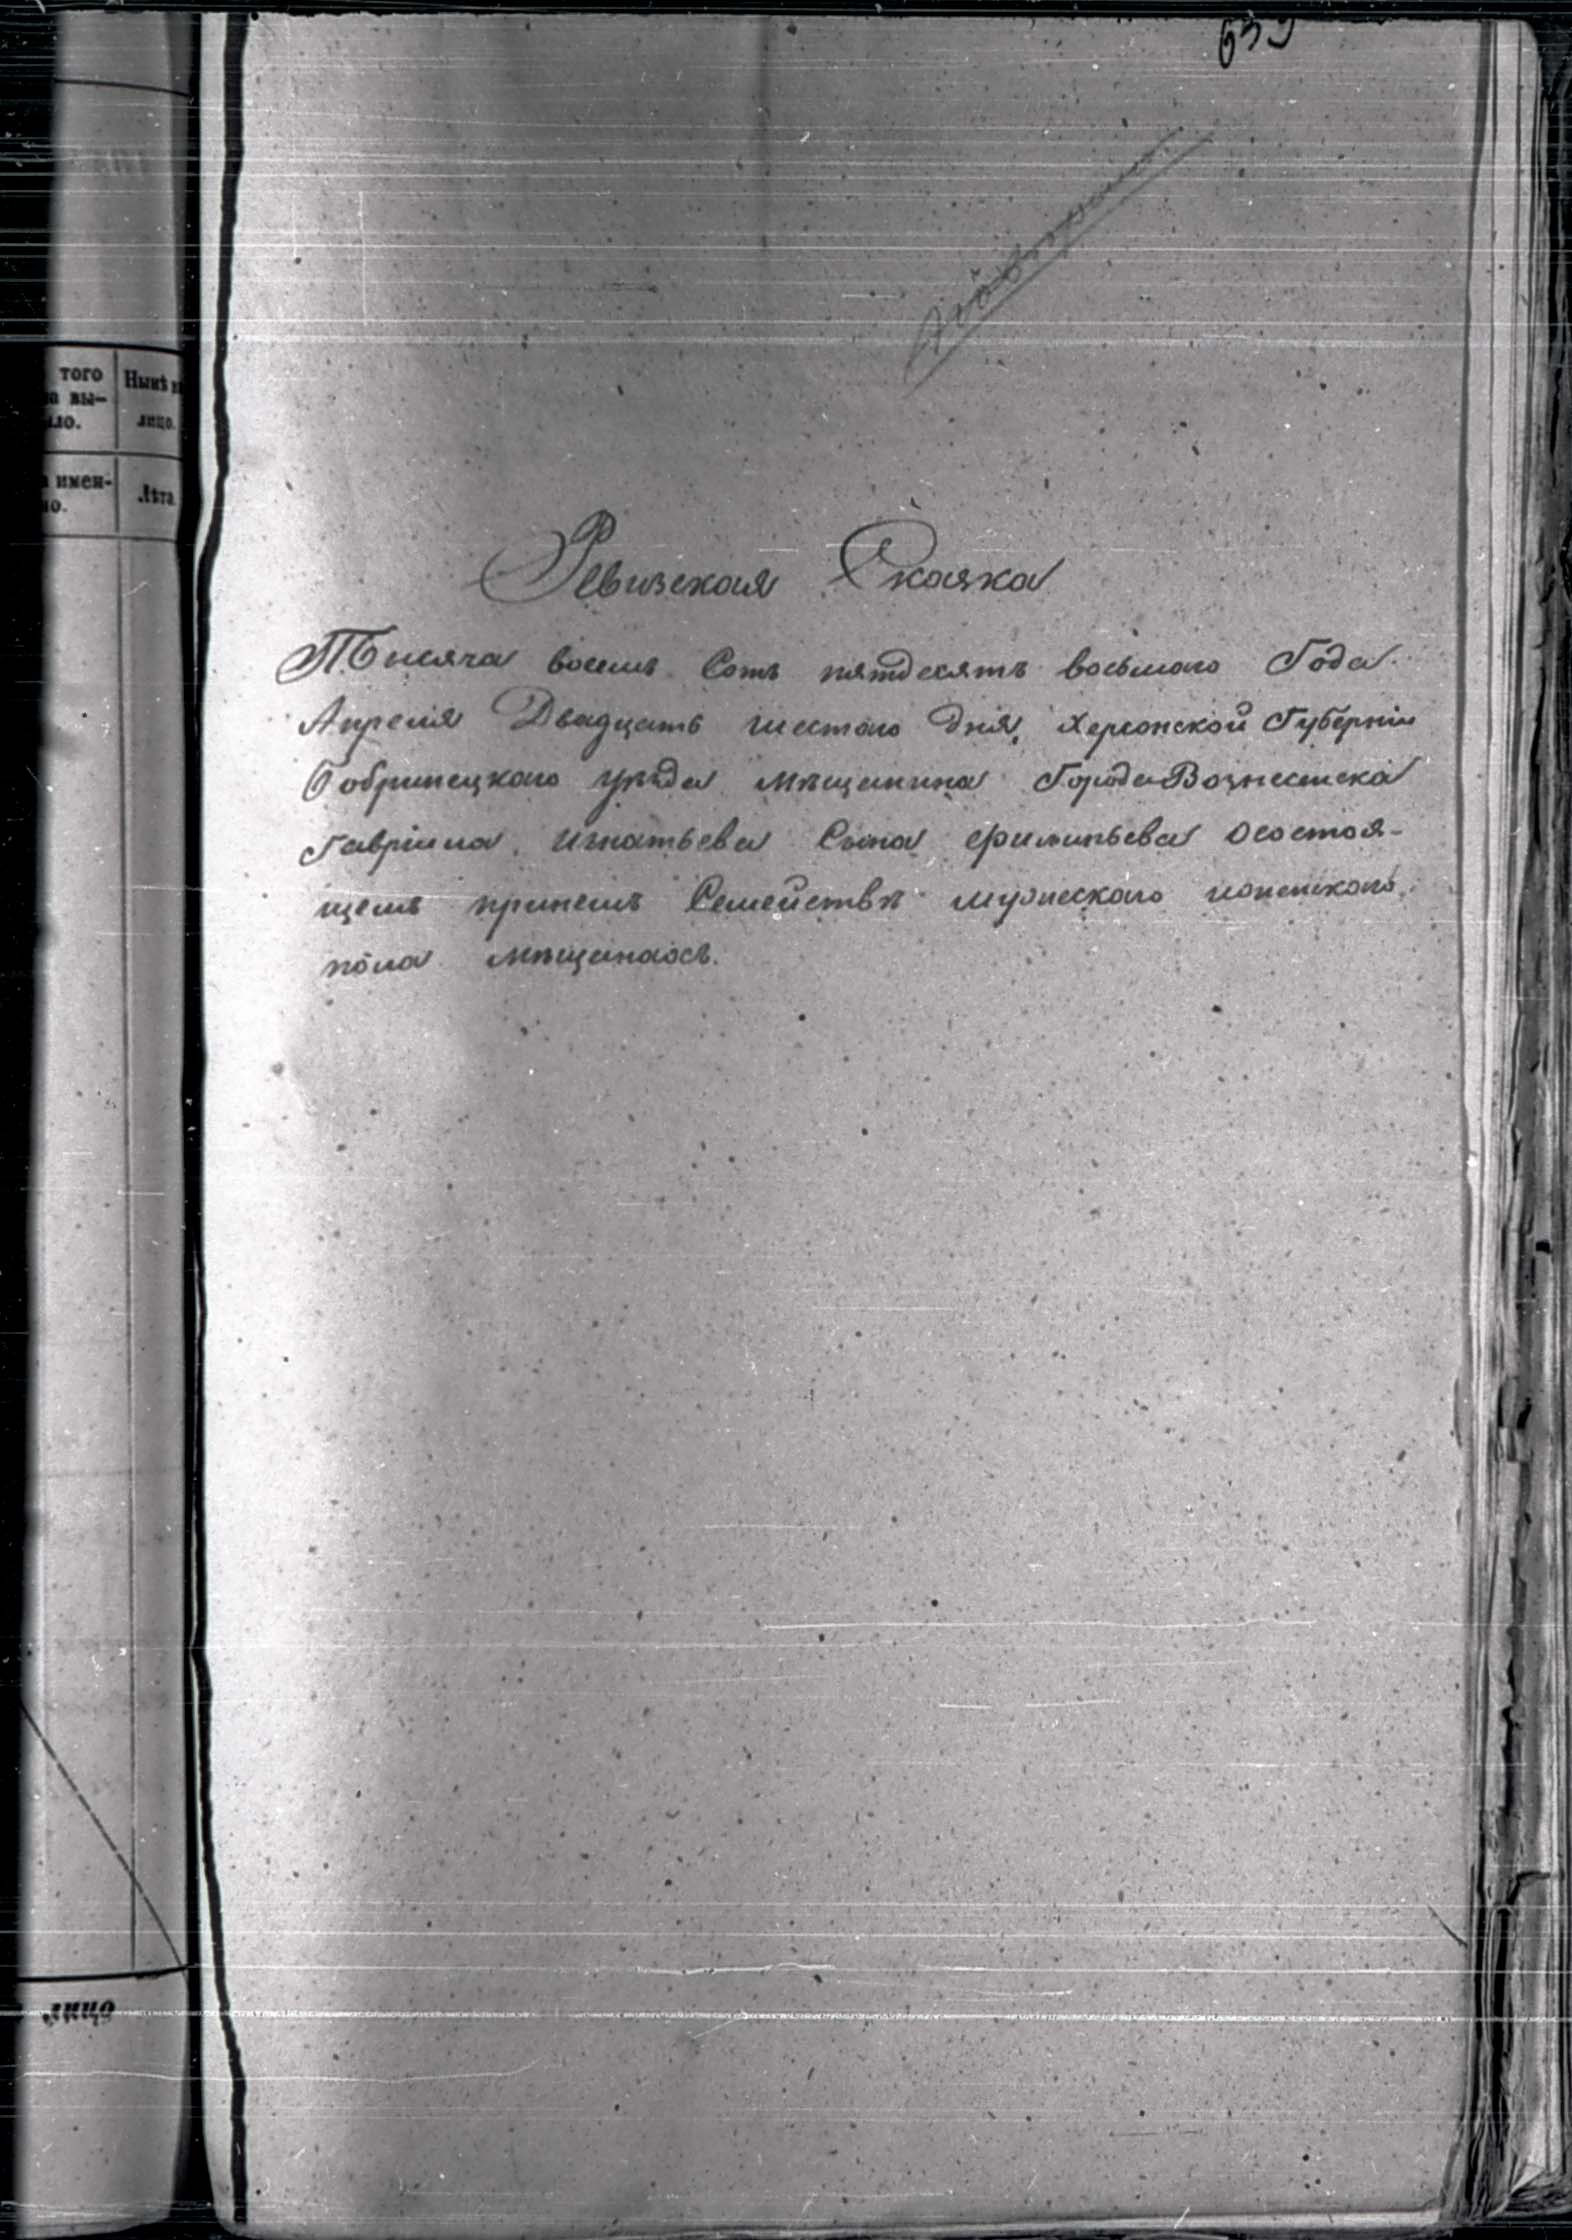 639
того
вы-
ло.
Нынѣ
лицо.
имен-
но.
Лѣта
Ревизская Сказка
Тысяча восемь Сотъ пятдесятъ восьмаго Года
Апреля Двадцать шестаго дня, Херсонской Губерніи
Бобринецкаго уѣзда мѣщанина Города Вознесенска
Гавріила Игнатьева Сына Филипьева Осостоя-
щемъ принемъ Семействѣ мужескаго иженскаго
пола мѣщанахъ.
лицо